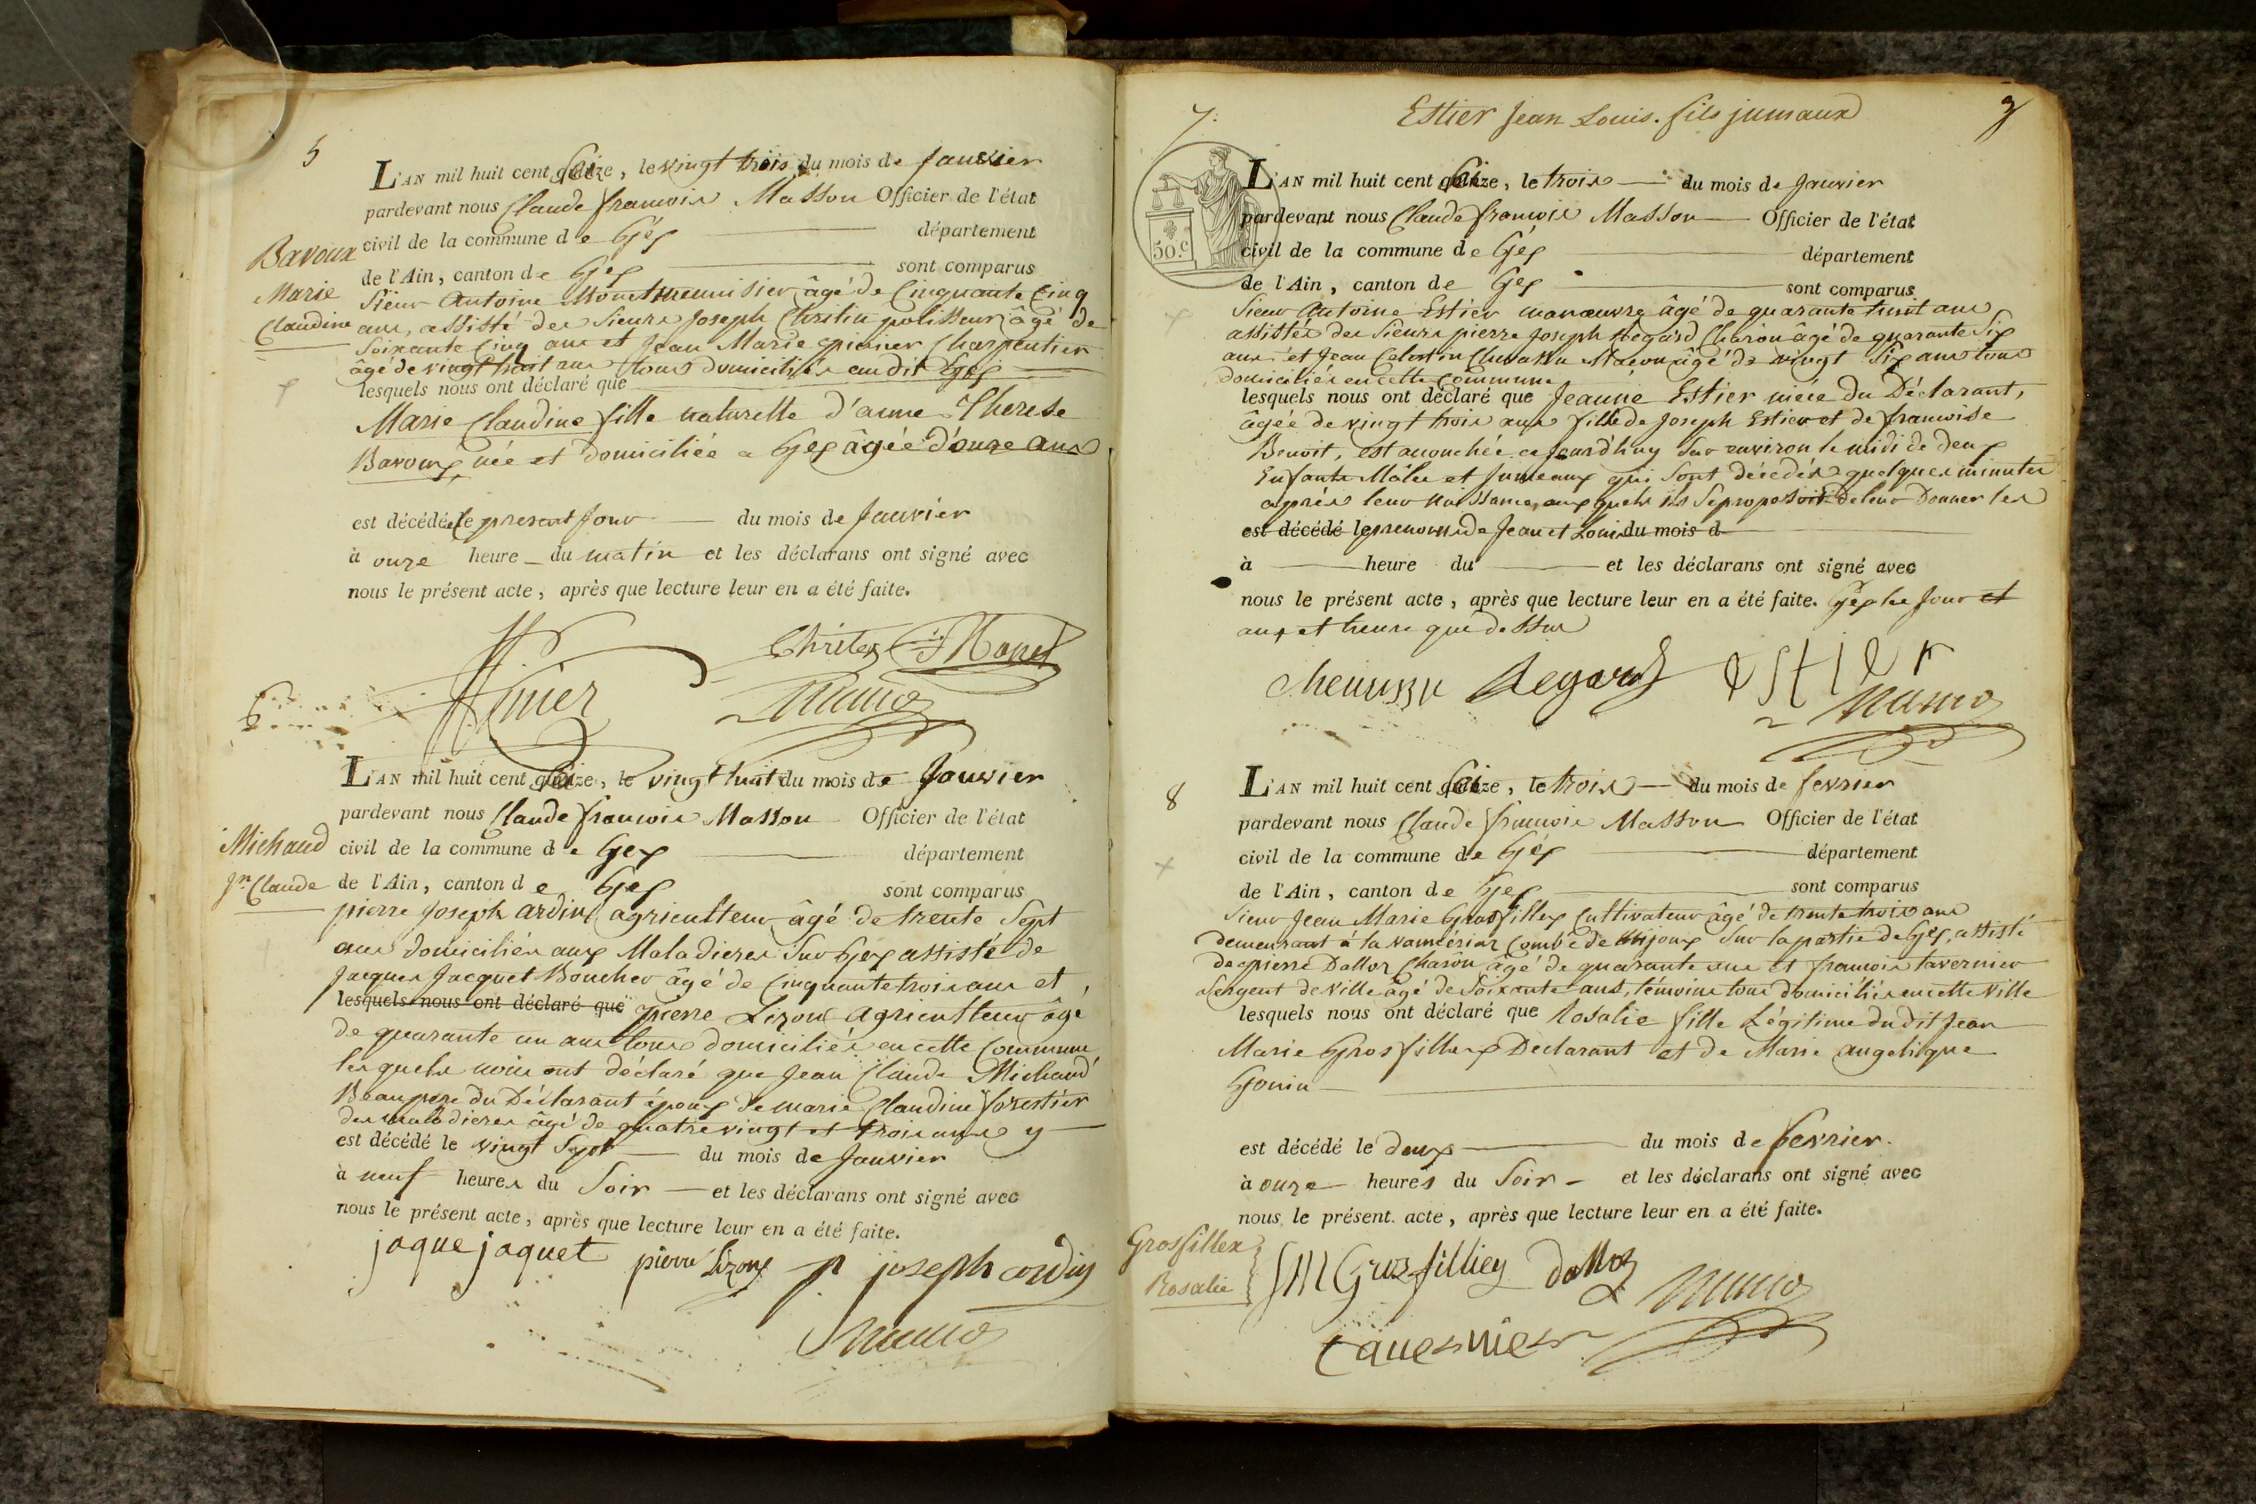 5
L'AN mil huit cent seize, le vingt trois du mois de Janvier
pardevant nous Claude francois Masson Officier de l'état
civil de la commune de Gex département
de l'Ain, canton de Gex sont comparus
Bavoux
Marie
Claudine
Sieur Antoine Monet menuisier âgé de Cinquante Cinq
ans, assisté des Sieurs Joseph Christin polisseur âgé de
Soixante Cinq ans et Jean Marie Charpentier
âgé de vingt huit ans tous domiciliés audit Gex
lesquels nous ont déclaré que
Marie Claudine fille naturelle d'anne Therese
Bavoux née et domiciliée a Gex âgée d'onze ans
est décédée le present Jour du mois de Janvier
à onze heure du matin et les déclarans ont signé avec
nous le présent acte, après que lecture leur en a été faite.
6
L'AN mil huit cent seize, le vingt huit du mois de Janvier
pardevant nous Claude francois Masson Officier de l'état
Michaud
Jn Claude
civil de la commune de Gex département
de l'Ain, canton de Gex sont comparus
pierre Joseph ardin agriculteur âgé de trente Sept
ans domiciliés aux Maladieres Sur Gex assisté de
Jacques Jacquet Boucher âgé de Cinquante trois ans et
lesquels nous ont déclaré que pierre Lizon agriculteur âgé
de quarante un ans tous domiciliés en cette Commune
lesquels nous ont déclaré que Jean Claude Michaud
Beaupere du Déclarant époux de marie Claudine forestier
des maladieres âgé de quatre vingt et trois ans y
est décédé le vingt Sept du mois de Janvier
à neuf heures du Soir et les déclarans ont signé avec
nous le présent acte, après que lecture leur en a été faite.
jaque jaquet pierre Lizon p joseph ardin
7
Estier Jean Louis. fils jumaux
L'AN mil huit cent seize, le trois du mois de Janvier
pardevant nous Claude francois Masson Officier de l'état
50.c
civil de la commune de Gex département
de l'Ain, canton de Gex sont comparus
Sieur Antoine Estier manœuvre âgé de quarante huit ans
assistés des Sieurs pierre Joseph Regard Charon âgé de quarante Six
ans et Jean Celestin Macon âgé de vingt Six ans tous
domiciliés en cette Commune
lesquels nous ont déclaré que Jeanne Estier niéce du Déclarant,
âgée de vingt trois ans fille de Joseph Estier et de francoise
Benoit, est acouchée ce Jourd'huy Sur environ le midi de deux
Enfants Mâles et Jumeaux qui Sont décédés quelques minutes
après leur naissance, auxquels ils Se proposoit de leur Donner les
est décédé le prenoms de Jean et Louis du mois d
à heure du et les déclarans ont signé avec
nous le présent acte, après que lecture leur en a été faite. Gex les Jour et
an, et heure que dessus
Regard estier
8
L'AN mil huit cent seize, le trois du mois de fevrier
pardevant nous Claude francois Masson Officier de l'état
civil de la commune de Gex département
de l'Ain, canton de Gex sont comparus
Sieur Jean Marie Grosfillex Cultivateur âgé de trente trois ans
demeurant à la Combe de Mijoux Sur la partie de Gex, assisté
de pierre Dalloz Charôn âgé de quarante ans et francois tavernier
Sergent de Ville âgé de Soixante ans, témoins tous domiciliés en cette Ville
lesquels nous ont déclaré que Rosalie fille Légitime du dit Jean
Marie Grosfillex Déclarant et de Marie angelique
Gonin
est décédé le deux du mois de fevrier.
à onze heures du Soir et les déclarans ont signé avec
nous le présent acte, après que lecture leur en a été faite.
Grosfillex
Rosalie
JM Grosfilliex Dalloz
tavernier